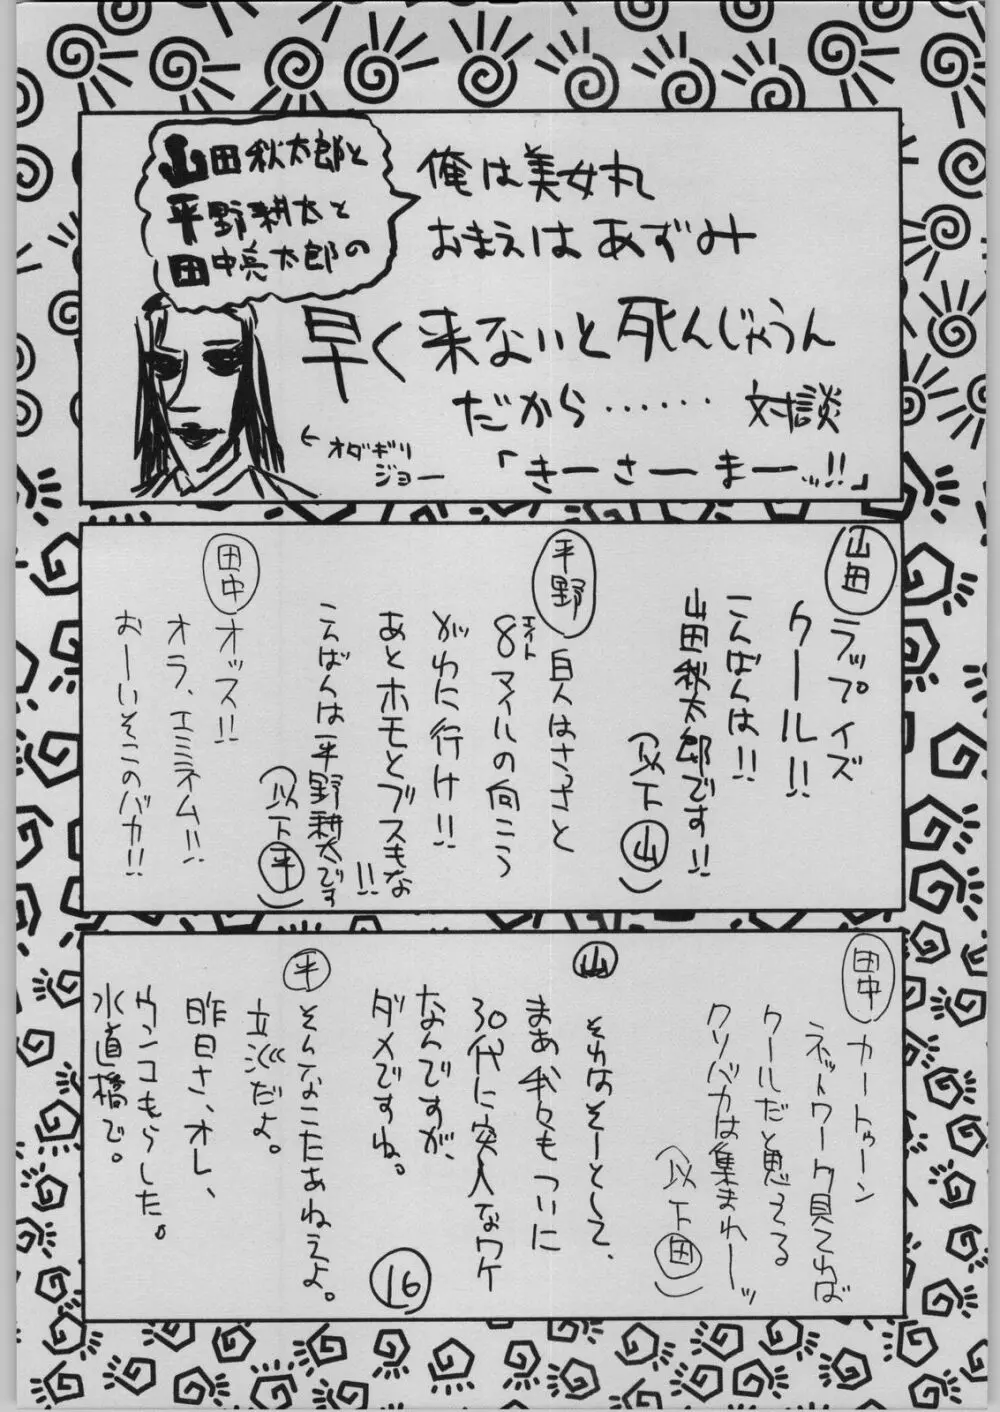 山田秋太郎と
平野耕太と
田中亮太郎の
俺は美女丸
おまえはあずみ
早く来ないと死んじゃうん
だから……対談
「きーさーまーッ!!」
←オダギリ
ジョー
山田
ラップイズ
クール!!
こんばんは!!
山田秋太郎です!!
(以下山)
平野
白人はさっさと
8マイルの向こう
エイト
がわに行け!!
あとホモとブスもな!!
こんばんは平野耕太です
(以下平)
田中
オッス!!
オラ、エミネム!!
おーいそこのバカ!!
田中
カートゥーン
ネットワーク見てれば
クールだと思ってる
クソバカは集まれーッ
(以下田)
山
それはそーとして、
まあ我々もついに
30代に突入なワケ
なんですが、
ダメですね。
平
そんなこたあねえよ。
立派だよ。
昨日さ、オレ、
ウンコもらした。
水道橋で。
16